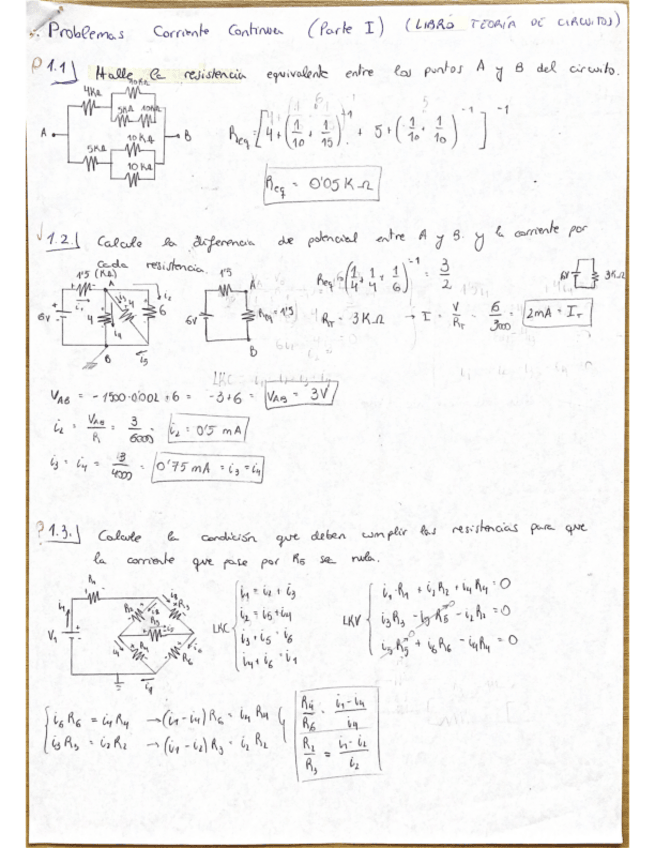 Problemas Corriente Continua (Parte I) (LIBRO TEORÍA DE CIRCUITOS)
P 1.1) Halle la resistencia equivalente entre los puntos A y B del circuito.
4KΩ 10KΩ 5KΩ 10KΩ A B 5KΩ 10KΩ 10KΩ
Req = [4+(1/10 + 1/15)^-1 + 5+(1/10 + 1/10)^-1]^-1
Req = 0'05 KΩ
1.2.) Calcule la diferencia de potencial entre A y B. y la corriente por
cada resistencia.
1'5 (KΩ) A i2 6V 4 4 6 B i3
1'5 A 6V Req=1'5 B
Req = (1/4 + 1/4 + 1/6)^-1 = 3/2
6V 3KΩ
RT = 3KΩ → I = V/RT = 6/3000 = 2mA = IT
VAB = -1500·0'002 + 6 = -3+6 = VAB = 3V
i2 = VAB/R = 3/6000 = i2 = 0'5 mA
i3 = i4 = 3/4000 = 0'75 mA = i3 = i4
P 1.3.) Calcule la condición que deben cumplir las resistencias para que
la corriente que pase por R5 sea nula.
R1 i1 V1 R2 R3 R5 R4 R6 i1
LKC { i1 = i2 + i3
i2 = i5 + i4
i3 + i5 = i6
i4 + i6 = i1
LKV { i1·R1 + i2R2 + i4R4 = 0
i3R3 - i5R5 - i2R2 = 0
i5R5 + i6R6 - i4R4 = 0
{ i6R6 = i4R4 → (i1-i4)R6 = i4R4
i3R3 = i2R2 → (i1-i2)R3 = i2R2
R4/R6 = i1-i4/i4
R2/R3 = i1-i2/i2